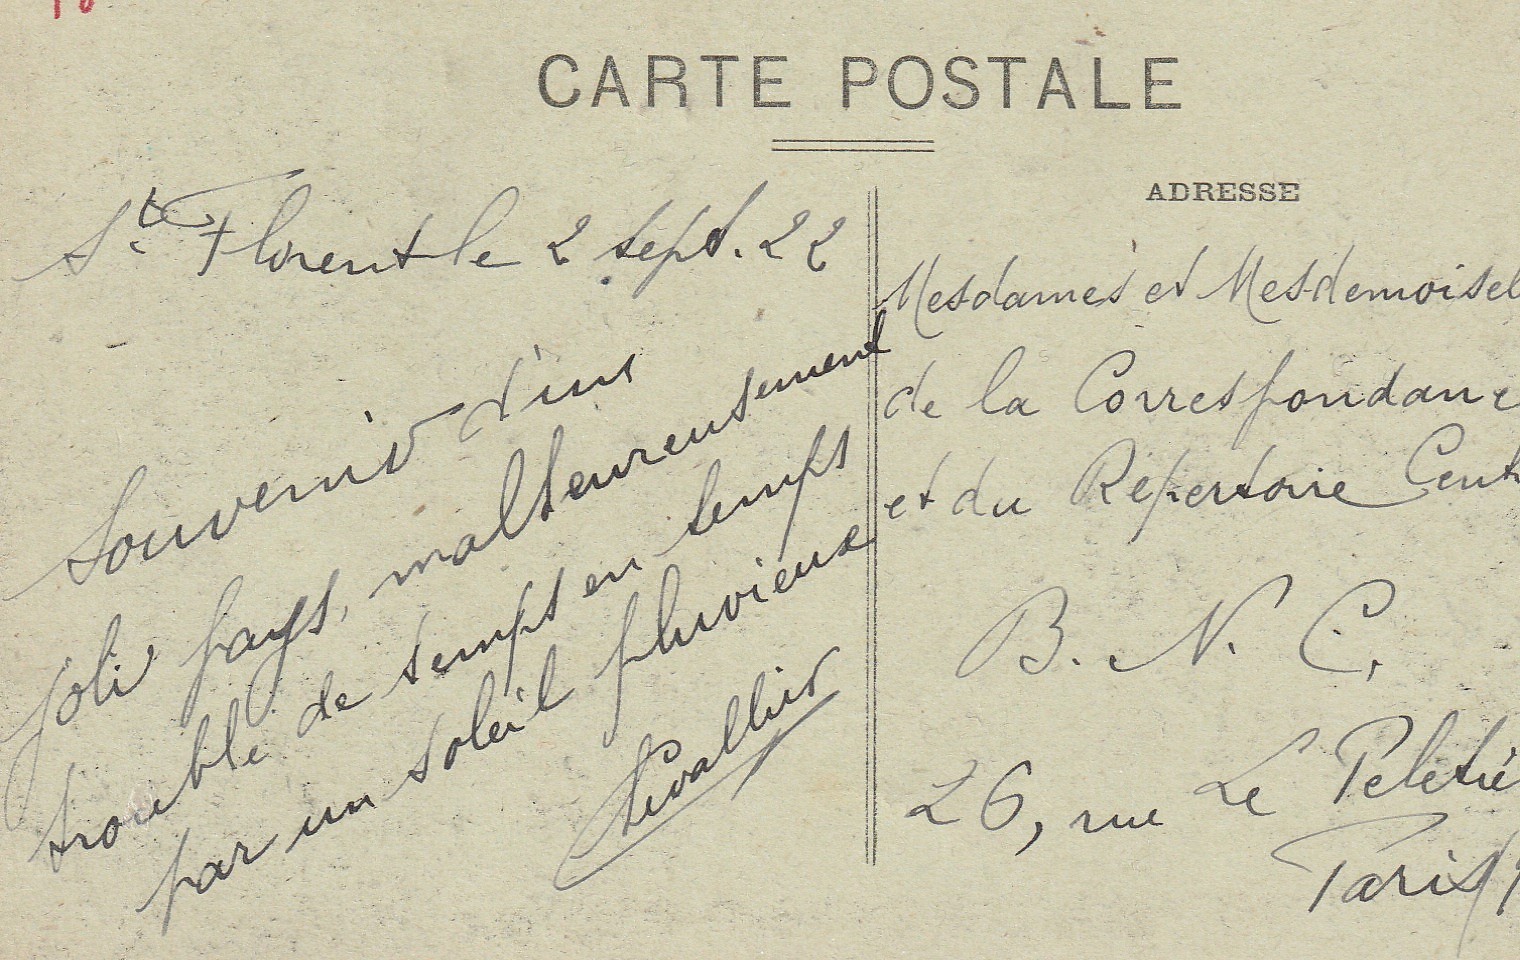 CARTE POSTALE
ADRESSE
St Florent le 2 sept. 22
Souvenir d'un
joli pays, malheureusement
troublé de temps en temps
par un soleil pluvieux
Mesdames et Mesdemoisel
de la Correspondanc
et du Répertoire Cent
B. N. C.
26, rue Le Peletie
Paris